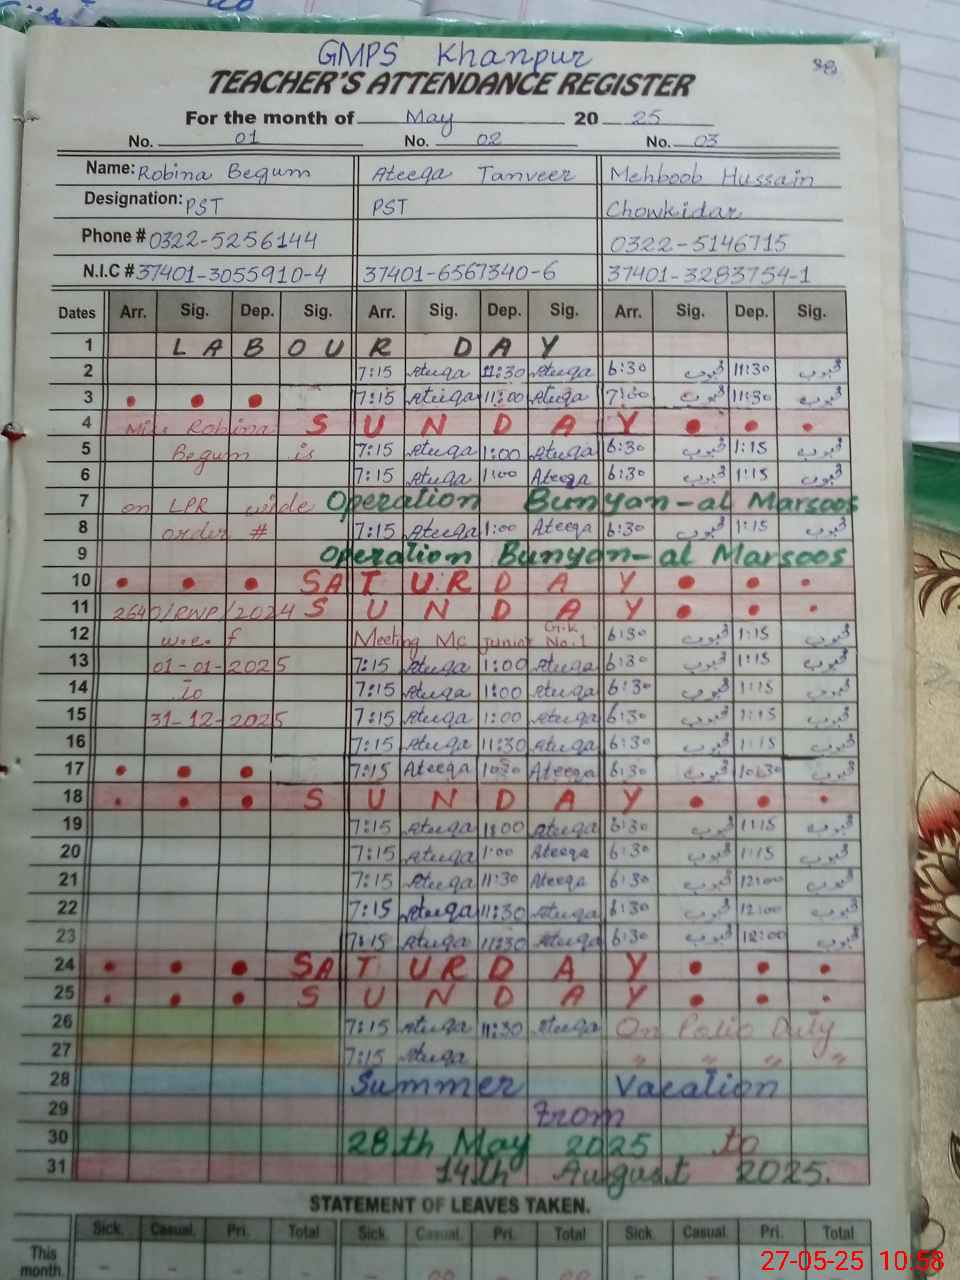 GMPS Khanpur
38
TEACHER'S ATTENDANCE REGISTER
For the month of May 2025
No. 01 No. 02 No. 03
Name: Robina Begum Ateeqa Tanveer Mehboob Hussain
Designation: PST PST Chowkidar
Phone # 0322-5256144 0322-5146715
N.I.C # 37401-3055910-4 37401-6567340-6 37401-3283754-1
Dates Arr. Sig. Dep. Sig. Arr. Sig. Dep. Sig. Arr. Sig. Dep. Sig.
1 LABOUR DAY
2 7:15 Ateeqa 11:30 Ateeqa 6:30 محبوب 11:30 محبوب
3 7:15 Ateeqa 11:00 Ateeqa 7:00 محبوب 11:30 محبوب
4 Miss Robina SUNDAY
5 Begum is 7:15 Ateeqa 1:00 Ateeqa 6:30 محبوب 1:15 محبوب
6 7:15 Ateeqa 1:00 Ateeqa 6:30 محبوب 1:15 محبوب
7 on LPR vide Operation Bunyan-al Marsoos
8 order # 7:15 Ateeqa 1:00 Ateeqa 6:30 محبوب 1:15 محبوب
9 Operation Bunyan-al Marsoos
10 SATURDAY
11 2640/RWP/2024 SUNDAY
12 w.e.f Meeting MC Junior No.1 6:30 محبوب 1:15 محبوب
13 01-01-2025 7:15 Ateeqa 1:00 Ateeqa 6:30 محبوب 1:15 محبوب
14 to 7:15 Ateeqa 1:00 Ateeqa 6:30 محبوب 1:15 محبوب
15 31-12-2025 7:15 Ateeqa 1:00 Ateeqa 6:30 محبوب 1:15 محبوب
16 7:15 Ateeqa 11:30 Ateeqa 6:30 محبوب 1:15 محبوب
17 7:15 Ateeqa 10:30 Ateeqa 6:30 محبوب 10:30 محبوب
18 SUNDAY
19 7:15 Ateeqa 1:00 Ateeqa 6:30 محبوب 1:15 محبوب
20 7:15 Ateeqa 1:00 Ateeqa 6:30 محبوب 1:15 محبوب
21 7:15 Ateeqa 11:30 Ateeqa 6:30 محبوب 12:00 محبوب
22 7:15 Ateeqa 11:30 Ateeqa 6:30 محبوب 12:00 محبوب
23 7:15 Ateeqa 11:30 Ateeqa 6:30 محبوب 12:00 محبوب
24 SATURDAY
25 SUNDAY
26 7:15 Ateeqa 11:30 Ateeqa On Polio Duty
27 7:15 Ateeqa " " " "
28 Summer Vacation
29 From
30 28th May 2025 to
31 14th August 2025.
STATEMENT OF LEAVES TAKEN.
Sick. Casual. Pri. Total Sick. Casual. Pri. Total Sick. Casual. Pri. Total
This month.
27-05-25 10:58